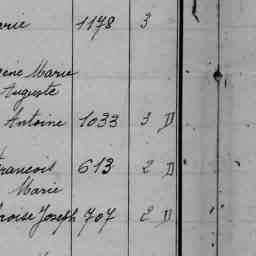 arie 1178 3
ène Marie
Auguste
Antoine 1033 3 D
François 613 2 D
Marie
roise Joseph 707 2 D